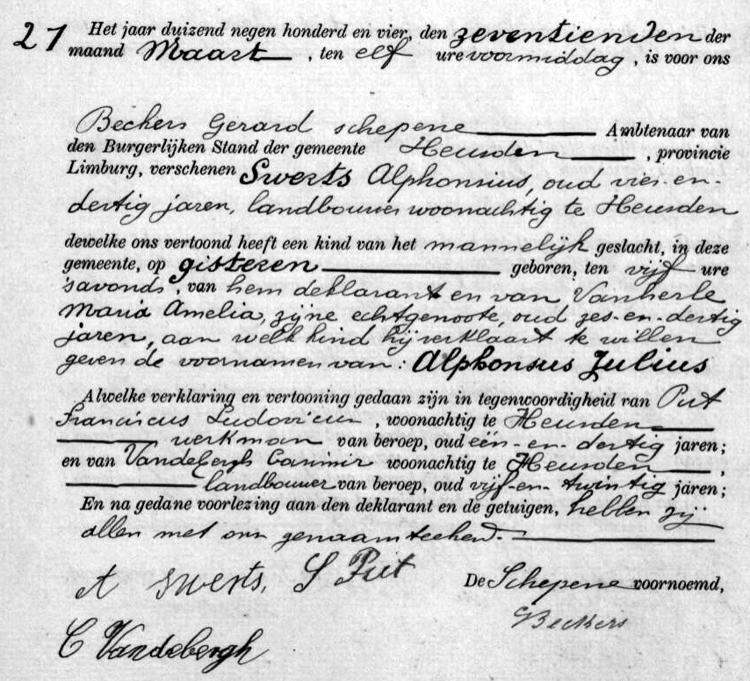 27 Het jaar duizend negen honderd en vier, den zeventienden der
maand Maart, ten elf ure voormiddag, is voor ons
Beckers Gerard schepene Ambtenaar van
den Burgerlijken Stand der gemeente Heusden, provincie
Limburg, verschenen Swerts Alphonsius, oud vier-en-
dertig jaren, landbouwer woonachtig te Heusden
dewelke ons vertoond heeft een kind van het mannelijk geslacht, in deze
gemeente, op gisteren geboren, ten vijf ure
'savonds, van hem deklarant en van Vanherle
Maria Amelia, zijne echtgenoote, oud zes-en-dertig
jaren, aan welk kind hij verklaart te willen
geven de voornamen van: Alphonsus Julius
Alwelke verklaring en vertooning gedaan zijn in tegenwoordigheid van Put
Franciscus Ludovicus, woonachtig te Heusden
werkman van beroep, oud een-en-dertig jaren;
en van Vandebergh Casimir woonachtig te Heusden,
landbouwer van beroep, oud vijf-en-twintig jaren;
En na gedane voorlezing aan den deklarant en de getuigen, hebben zij
allen met ons genaamteekend.
A Swerts, L Put
De Schepene voornoemd,
Beckers
C Vandebergh